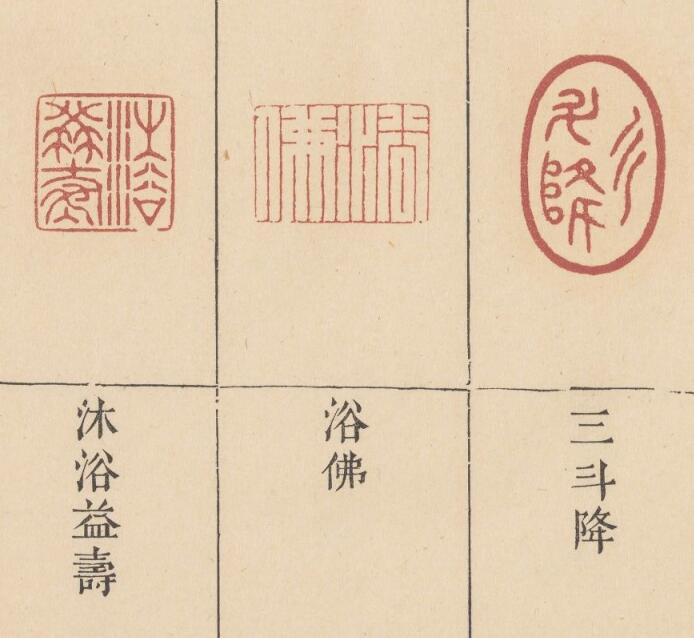 三斗降
浴佛
沐浴益壽